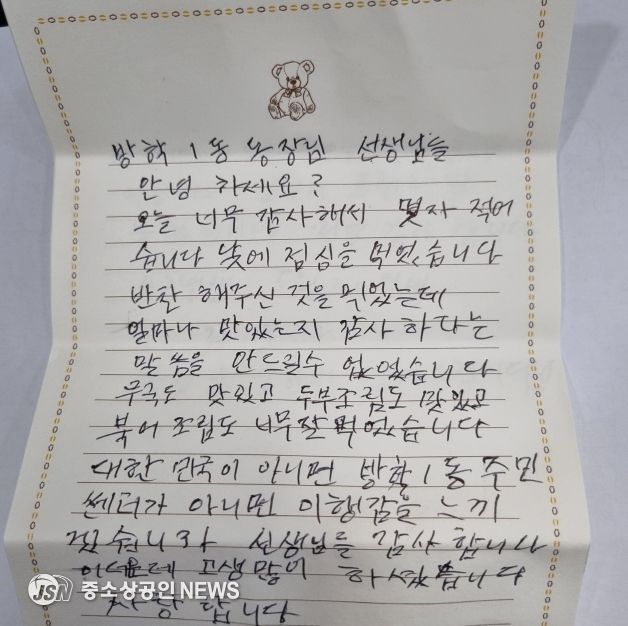 방학 1동 동장님 선생님들
안녕 하세요?
오늘 너무 감사해서 몇자 적어
습니다 낮에 점심을 먹었습니다
반찬 해주신 것을 먹었는데
얼마나 맛있는지 감사 하다는
말씀을 안드릴수 없었습니다
무국도 맛있고 두부조림도 맛있고
북어 조림도 너무잘 먹었습니다
대한 민국이 아니면 방학1동 주민
쎈터가 아니면 이행감을 느끼
겠습니까 선생님들 감사 합니다
고생많이 하셨습니다
사랑 합니다
JSN 중소상공인 NEWS